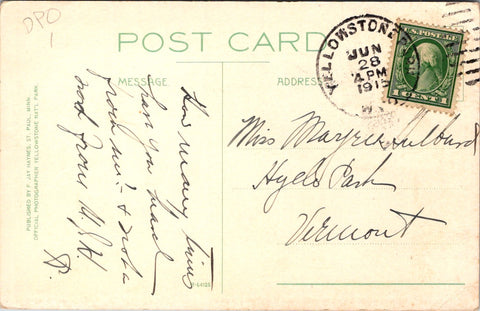 DPO
1
POST CARD
MESSAGE
ADDRESS
YELLOWSTONE
JUN
28
4 PM
1915
U.S. POSTAGE
1 CENT 1
How many times
have you heard
from me &
not from H.
PUBLISHED BY F. JAY HAYNES, ST. PAUL, MINN.
OFFICIAL PHOTOGRAPHER YELLOWSTONE NAT'L PARK.
Miss Hulburd
Hyde Park
Vermont